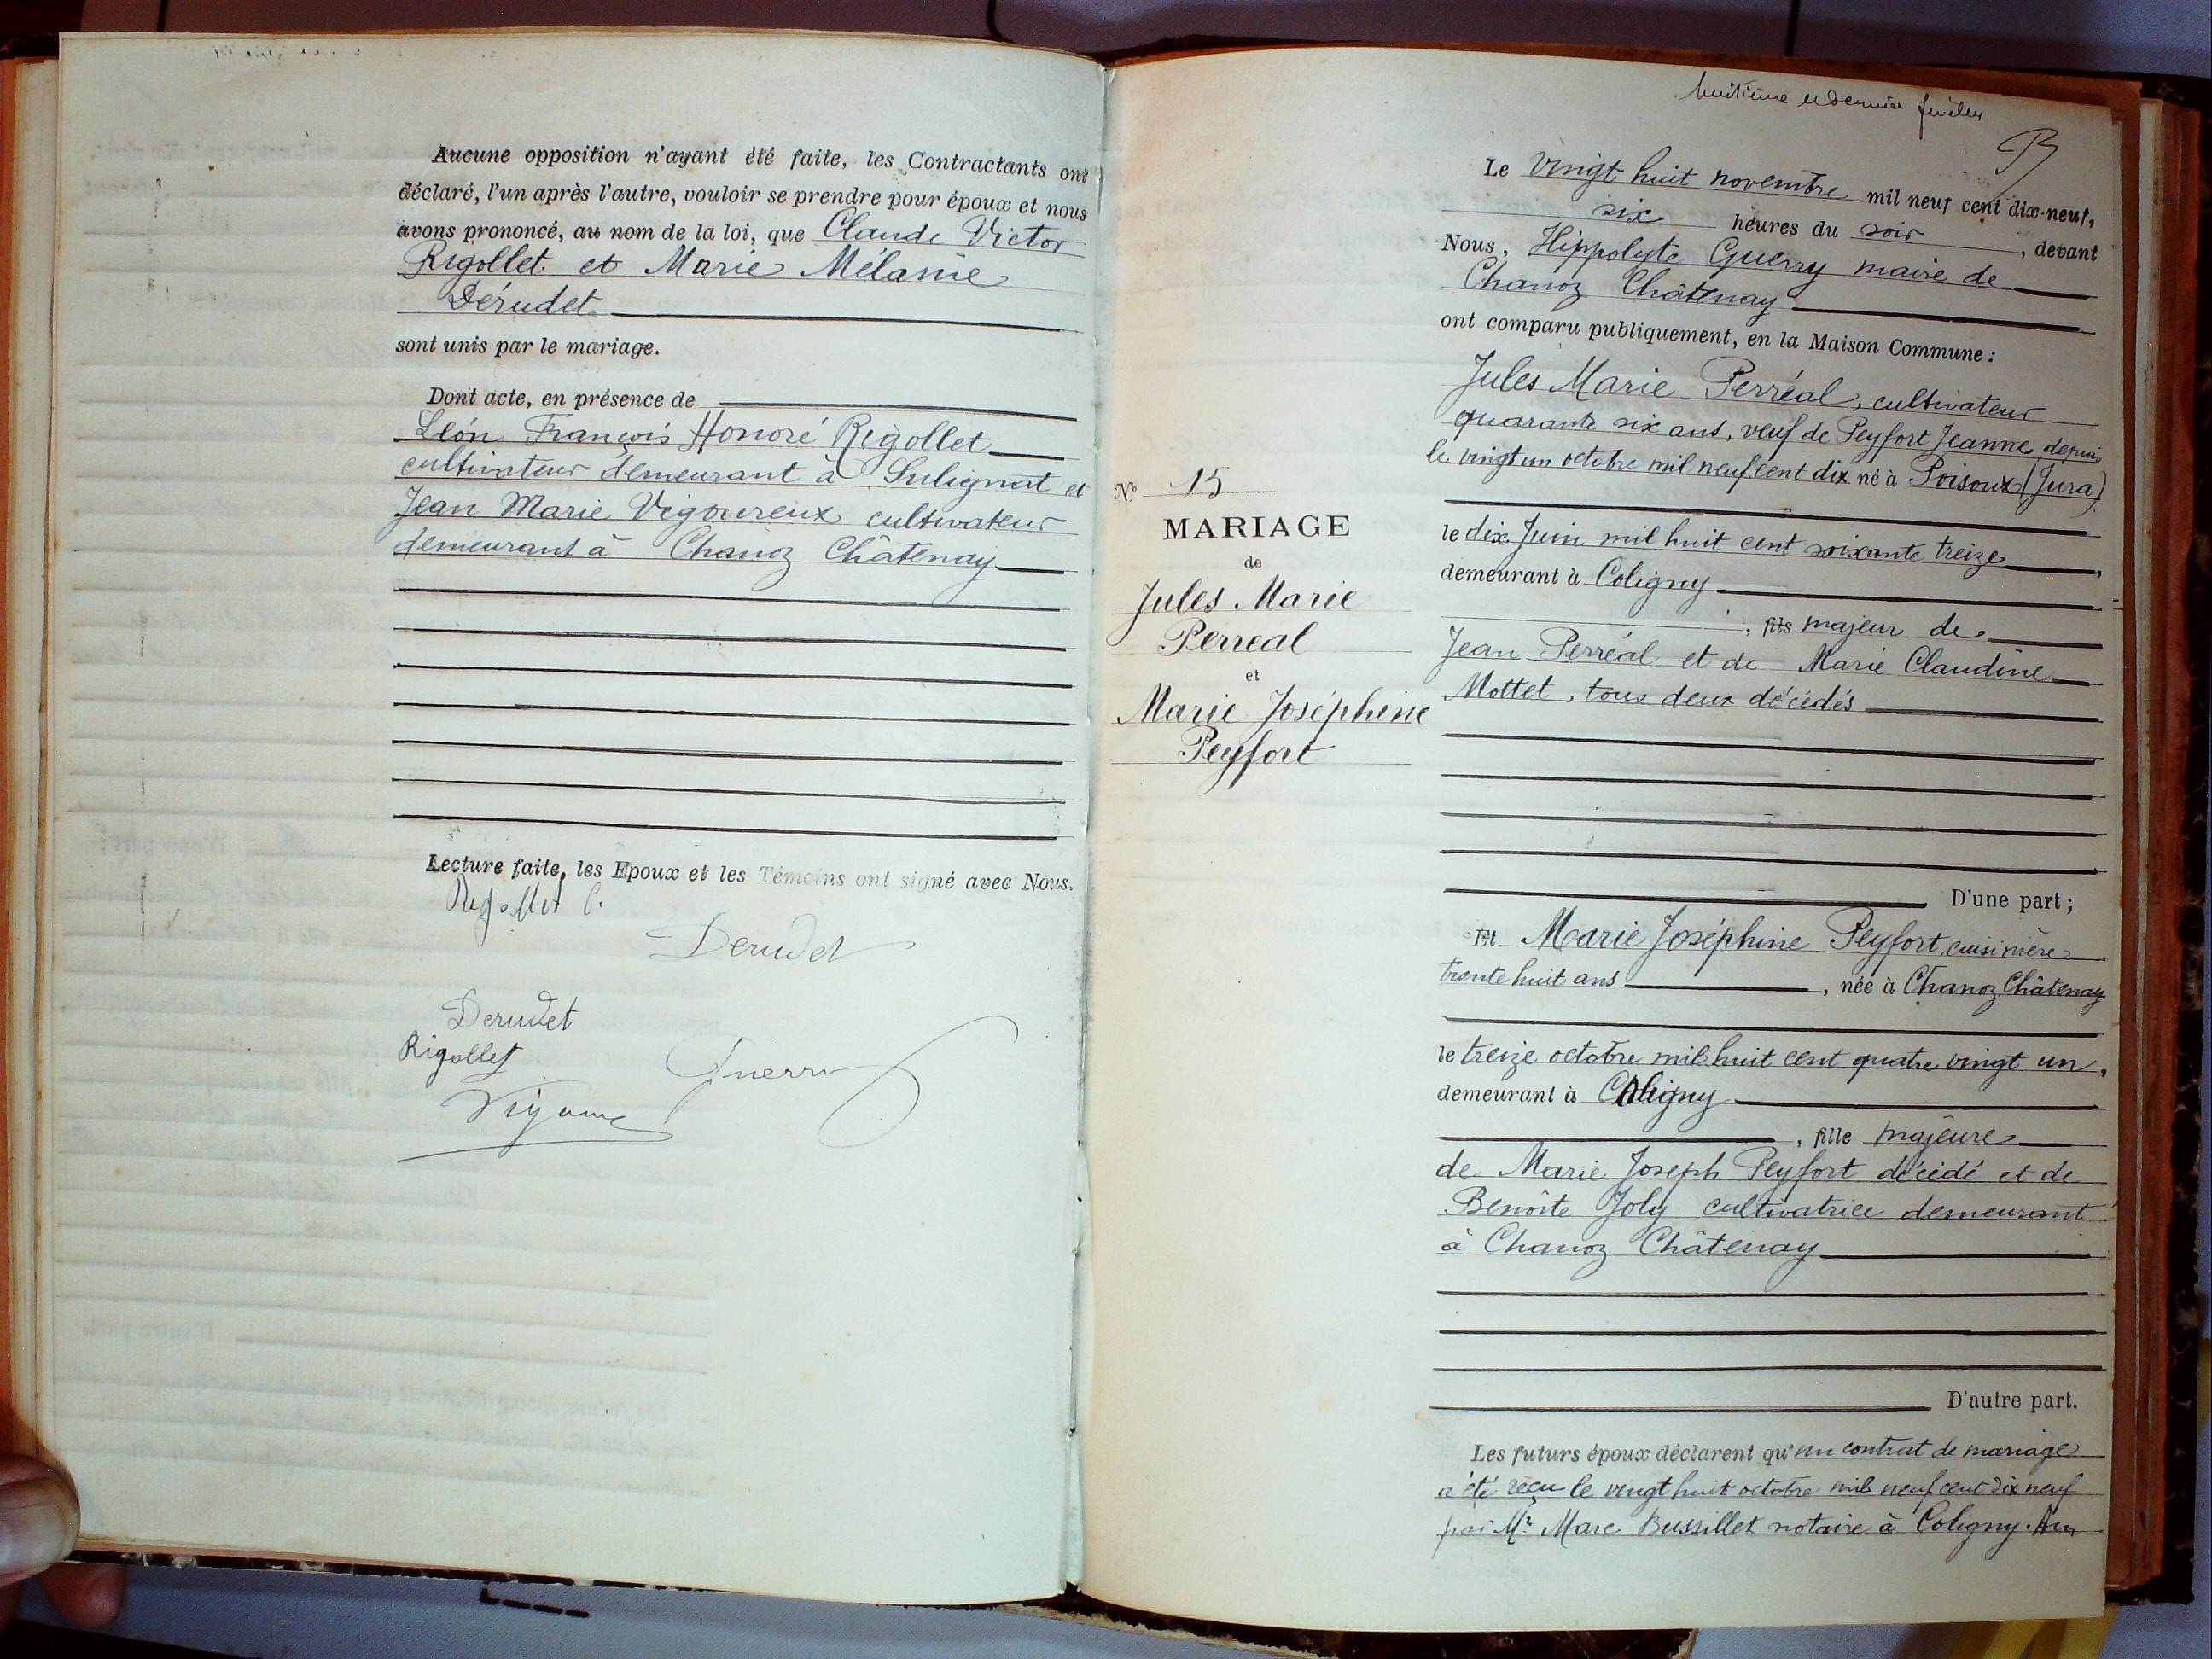 Aucune opposition n'ayant été faite, les Contractants ont
déclaré, l'un après l'autre, vouloir se prendre pour époux et nous
avons prononcé, au nom de la loi, que Claude Victor
Rigollet et Marie Mélanie
Dérudet
sont unis par le mariage.
Dont acte, en présence de
Léon François Honoré Rigollet
cultivateur demeurant à Sulignat et
Jean Marie Vigoureux cultivateur
demeurant à Chanoz Châtenay
Lecture faite, les Epoux et les Témoins ont signé avec Nous.
Rigollet C.
Derudet
Derudet
Rigollet
Guerry
huitième et dernier feuillet
Le vingt huit novembre mil neuf cent dix-neuf,
six heures du soir, devant
Nous, Hippolyte Guerry maire de
Chanoz Châtenay
ont comparu publiquement, en la Maison Commune :
Jules Marie Perréal, cultivateur
quarante six ans, veuf de Peyfort Jeanne depuis
le vingt un octobre mil neuf cent dix né à Poisoux (Jura)
le dix Juin mil huit cent soixante treize,
demeurant à Coligny
, fils majeur de
Jean Perréal et de Marie Claudine
Mottet, tous deux décédés
D'une part ;
Nº 15
MARIAGE
de
Jules Marie
Perreal
et
Marie Joséphine
Peyfort
Et Marie Joséphine Peyfort, cuisinière
trente huit ans, née à Chanoz Châtenay
le treize octobre mil huit cent quatre vingt un,
demeurant à Coligny
, fille majeure
de Marie Joseph Peyfort décédé et de
Benoîte Joly cultivatrice demeurant
à Chanoz Châtenay
D'autre part.
Les futurs époux déclarent qu'un contrat de mariage
a été reçu le vingt huit octobre mil neuf cent dix neuf
par Mr. Marc Bussillet notaire à Coligny.